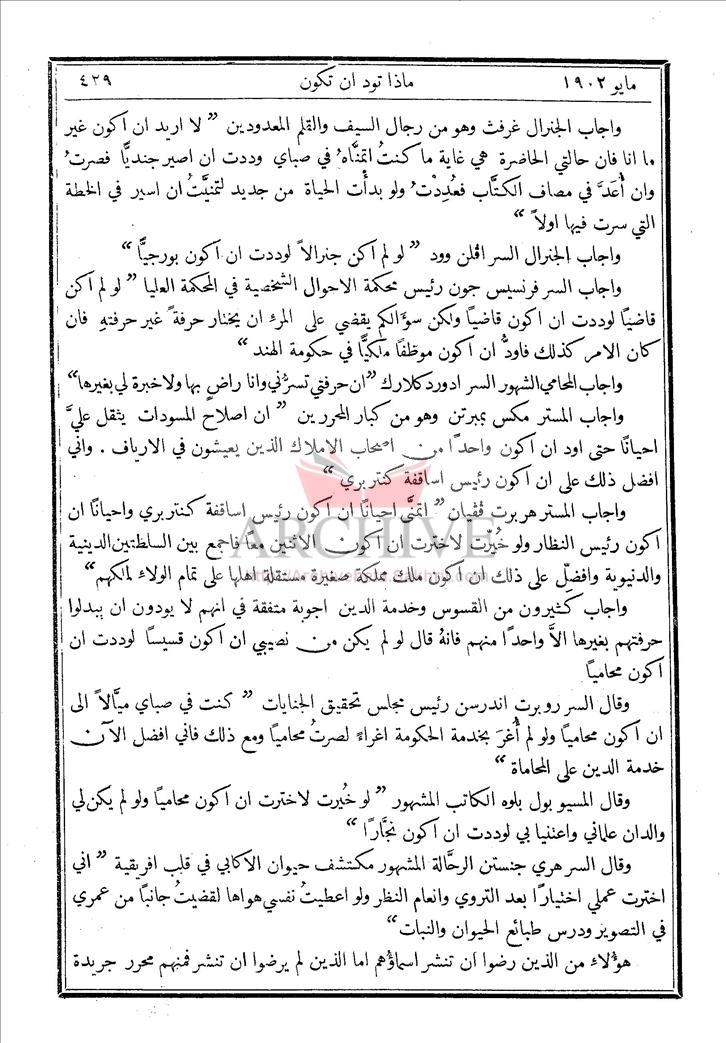 مايو ١٩٠٢
ماذا تود ان تكون
٤٢٩
واجاب الجنرال غرفث وهو من رجال السيف والقلم المعدودين " لا اريد ان اكون غير
ما انا فان حالتي الحاضرة هي غاية ما كنتُ اتمنَّاهُ في صباي وددت ان اصير جنديًّا فصرتُ
وان أُعَدَّ في مصاف الكتَّاب فعُدِدْتُ ولو بدأت الحياة من جديد لتمنَّيتُ ان اسير في الخطة
التي سرت فيها اولاً "
واجاب الجنرال السر اڤلن وود " لو لم اكن جنرالاً لوددت ان اكون بورجيًّا "
واجاب السر فرنسيس جون رئيس محكمة الاحوال الشخصية في المحكمة العليا " لو لم اكن
قاضيًا لوددت ان اكون قاضيًا ولكن سؤالكم يقضي على المرء ان يختار حرفةً غير حرفتهِ فان
كان الامر كذلك فاودُّ ان اكون موظفًا ملكيًّا في حكومة الهند "
واجاب المحامي الشهور السر ادورد كلارك "ان حرفتي تسرُّني وانا راضٍ بها ولا خبرة لي بغيرها"
واجاب المستر مكس بمبرتن وهو من كبار المحررين " ان اصلاح المسودات يثقل عليَّ
احيانًا حتى اود ان اكون واحدًا من اصحاب الاملاك الذين يعيشون في الارياف . واني
افضل ذلك على ان اكون رئيس اساقفة كنتربري "
واجاب المستر هربرت ڤڤيان " اتمنَّى احيانًا ان اكون رئيس اساقفة كنتربري واحيانًا ان
اكون رئيس النظار ولو خُيِّرت لاخترت ان اكون الاثنين معًا فاجمع بين السلطتين الدينية
والدنيوية وافضِّل على ذلك ان اكون ملك مملكة صغيرة مستقلة اهلها على تمام الولاء لملكهم "
ARCHIVE
واجاب كثيرون من القسوس وخدمة الدين اجوبة متفقة في انهم لا يودون ان يبدلوا
حرفتهم بغيرها الاَّ واحدًا منهم فانهُ قال لو لم يكن من نصيبي ان اكون قسيسًا لوددت ان
اكون محاميًا
وقال السر روبرت اندرسن رئيس مجلس تحقيق الجنايات " كنت في صباي ميَّالاً الى
ان اكون محاميًا ولو لم أُغرَ بخدمة الحكومة اغراءً لصرتُ محاميًا ومع ذلك فاني افضل الآن
خدمة الدين على المحاماة "
وقال المسيو بول بلوه الكاتب المشهور " لو خُيرت لاخترت ان اكون محاميًا ولو لم يكن لي
والدان علماني واعتنيا بي لوددت ان اكون نجَّارًا "
وقال السر هري جنستن الرحَّالة المشهور مكتشف حيوان الاكابي في قلب افريقية " اني
اخترت عملي اختيارًا بعد التروي وانعام النظر ولو اعطيتُ نفسي هواها لقضيتُ جانبًا من عمري
في التصوير ودرس طبائع الحيوان والنبات "
هؤلاء من الذين رضوا ان تنشر اسماؤهم اما الذين لم يرضوا ان تنشر فمنهم محرر جريدة